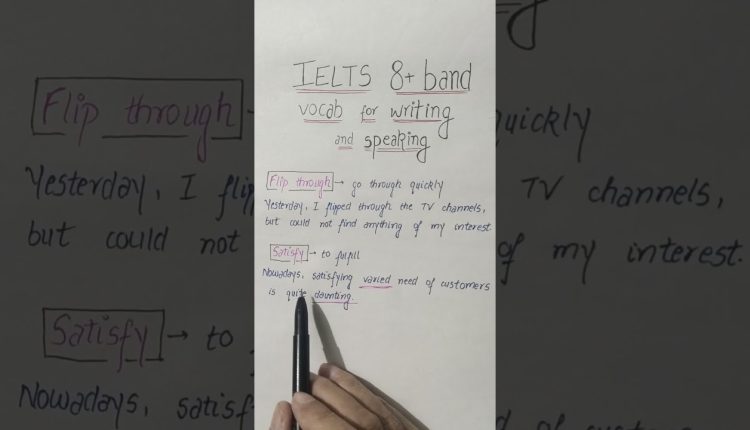 IELTS 8+ band
vocab for writing
and speaking
Flip through → go through quickly
Yesterday, I flipped through the TV channels,
but could not find anything of my interest
Satisfy → to fulfill
Nowadays, satisfying varied need of customers
is quite daunting.
Flip through
Yesterday, I flip
but could not
Satisfy → to
Nowadays, satisf
quickly
TV channels,
of my interest.